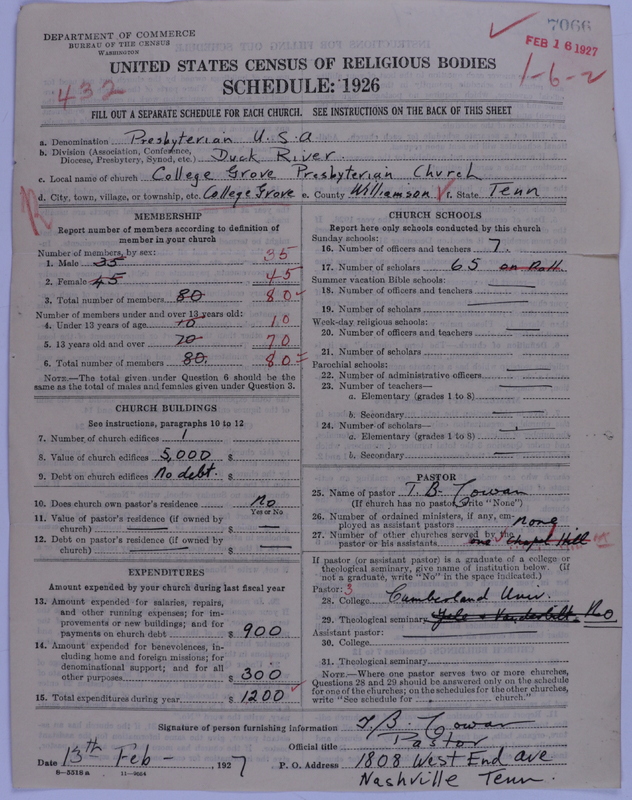 7066
DEPARTMENT OF COMMERCE
BUREAU OF THE CENSUS
WASHINGTON
FEB 16 1927
1-6-2
UNITED STATES CENSUS OF RELIGIOUS BODIES
SCHEDULE: 1926
432
FILL OUT A SEPARATE SCHEDULE FOR EACH CHURCH. SEE INSTRUCTIONS ON THE BACK OF THIS SHEET
a. Denomination Presbyterian U.S.A
b. Division (Association, Conference, Diocese, Presbytery, Synod, etc.) Duck River.
c. Local name of church College Grove Presbyterian Church
d. City, town, village, or township, etc. College Grove e. County Williamson f. State Tenn
MEMBERSHIP
Report number of members according to definition of
member in your church
Number of members, by sex:
1. Male 35 35
2. Female 45 45
3. Total number of members 80 80
Number of members under and over 13 years old:
4. Under 13 years of age 10 10
5. 13 years old and over 70 70
6. Total number of members 80. 80
NOTE.—The total given under Question 6 should be
same as the total of males and females given under Question 3.
CHURCH BUILDINGS
See instructions, paragraphs 10 to 12
7. Number of church edifices 1
8. Value of church edifices 5,000 $
9. Debt on church edifices No debt. $
10. Does church own pastor's residence No
Yes or No
11. Value of pastor's residence (if owned by
church) $ —
12. Debt on pastor's residence (if owned by
church) $ —
EXPENDITURES
Amount expended by your church during last fiscal year
13. Amount expended for salaries, repairs,
and other running expenses; for im-
provements or new buildings; and for
payments on church debt $ 900
14. Amount expended for benevolences, in-
cluding home and foreign missions; for
denominational support; and for all
other purposes $ 300
15. Total expenditures during year $ 1200
CHURCH SCHOOLS
Report here only schools conducted by this church
Sunday schools:
16. Number of officers and teachers 7.
17. Number of scholars 65 on Roll.
Summer vacation Bible schools:
18. Number of officers and teachers —
19. Number of scholars —
Week-day religious schools:
20. Number of officers and teachers —
21. Number of scholars —
Parochial schools:
22. Number of administrative officers —
23. Number of teachers—
a. Elementary (grades 1 to 8) —
b. Secondary —
24. Number of scholars—
a. Elementary (grades 1 to 8) —
b. Secondary —
PASTOR
25. Name of pastor T. B. Cowan
(If church has no pastor, write "None")
26. Number of ordained ministers, if any, em-
ployed as assistant pastors none
27. Number of other churches served by the
pastor or his assistants one Chapel Hill
If pastor (or assistant pastor) is a graduate of a college or
theological seminary, give name of institution below. (If
not a graduate, write "No" in the space indicated.)
Pastor: 3
28. College Cumberland Univ.
29. Theological seminary Yale & Vanderbilt. No
Assistant pastor:
30. College
31. Theological seminary
NOTE.—Where one pastor serves two or more churches,
Questions 28 and 29 should be answered only on the schedule
for one of the churches; on the schedules for the other churches,
write "See schedule for church."
Signature of person furnishing information T. B. Cowan
Official title Pastor
Date 13th Feb - , 1927 P. O. Address 1808 West End ave
Nashville Tenn.
8-5518a 11-9064